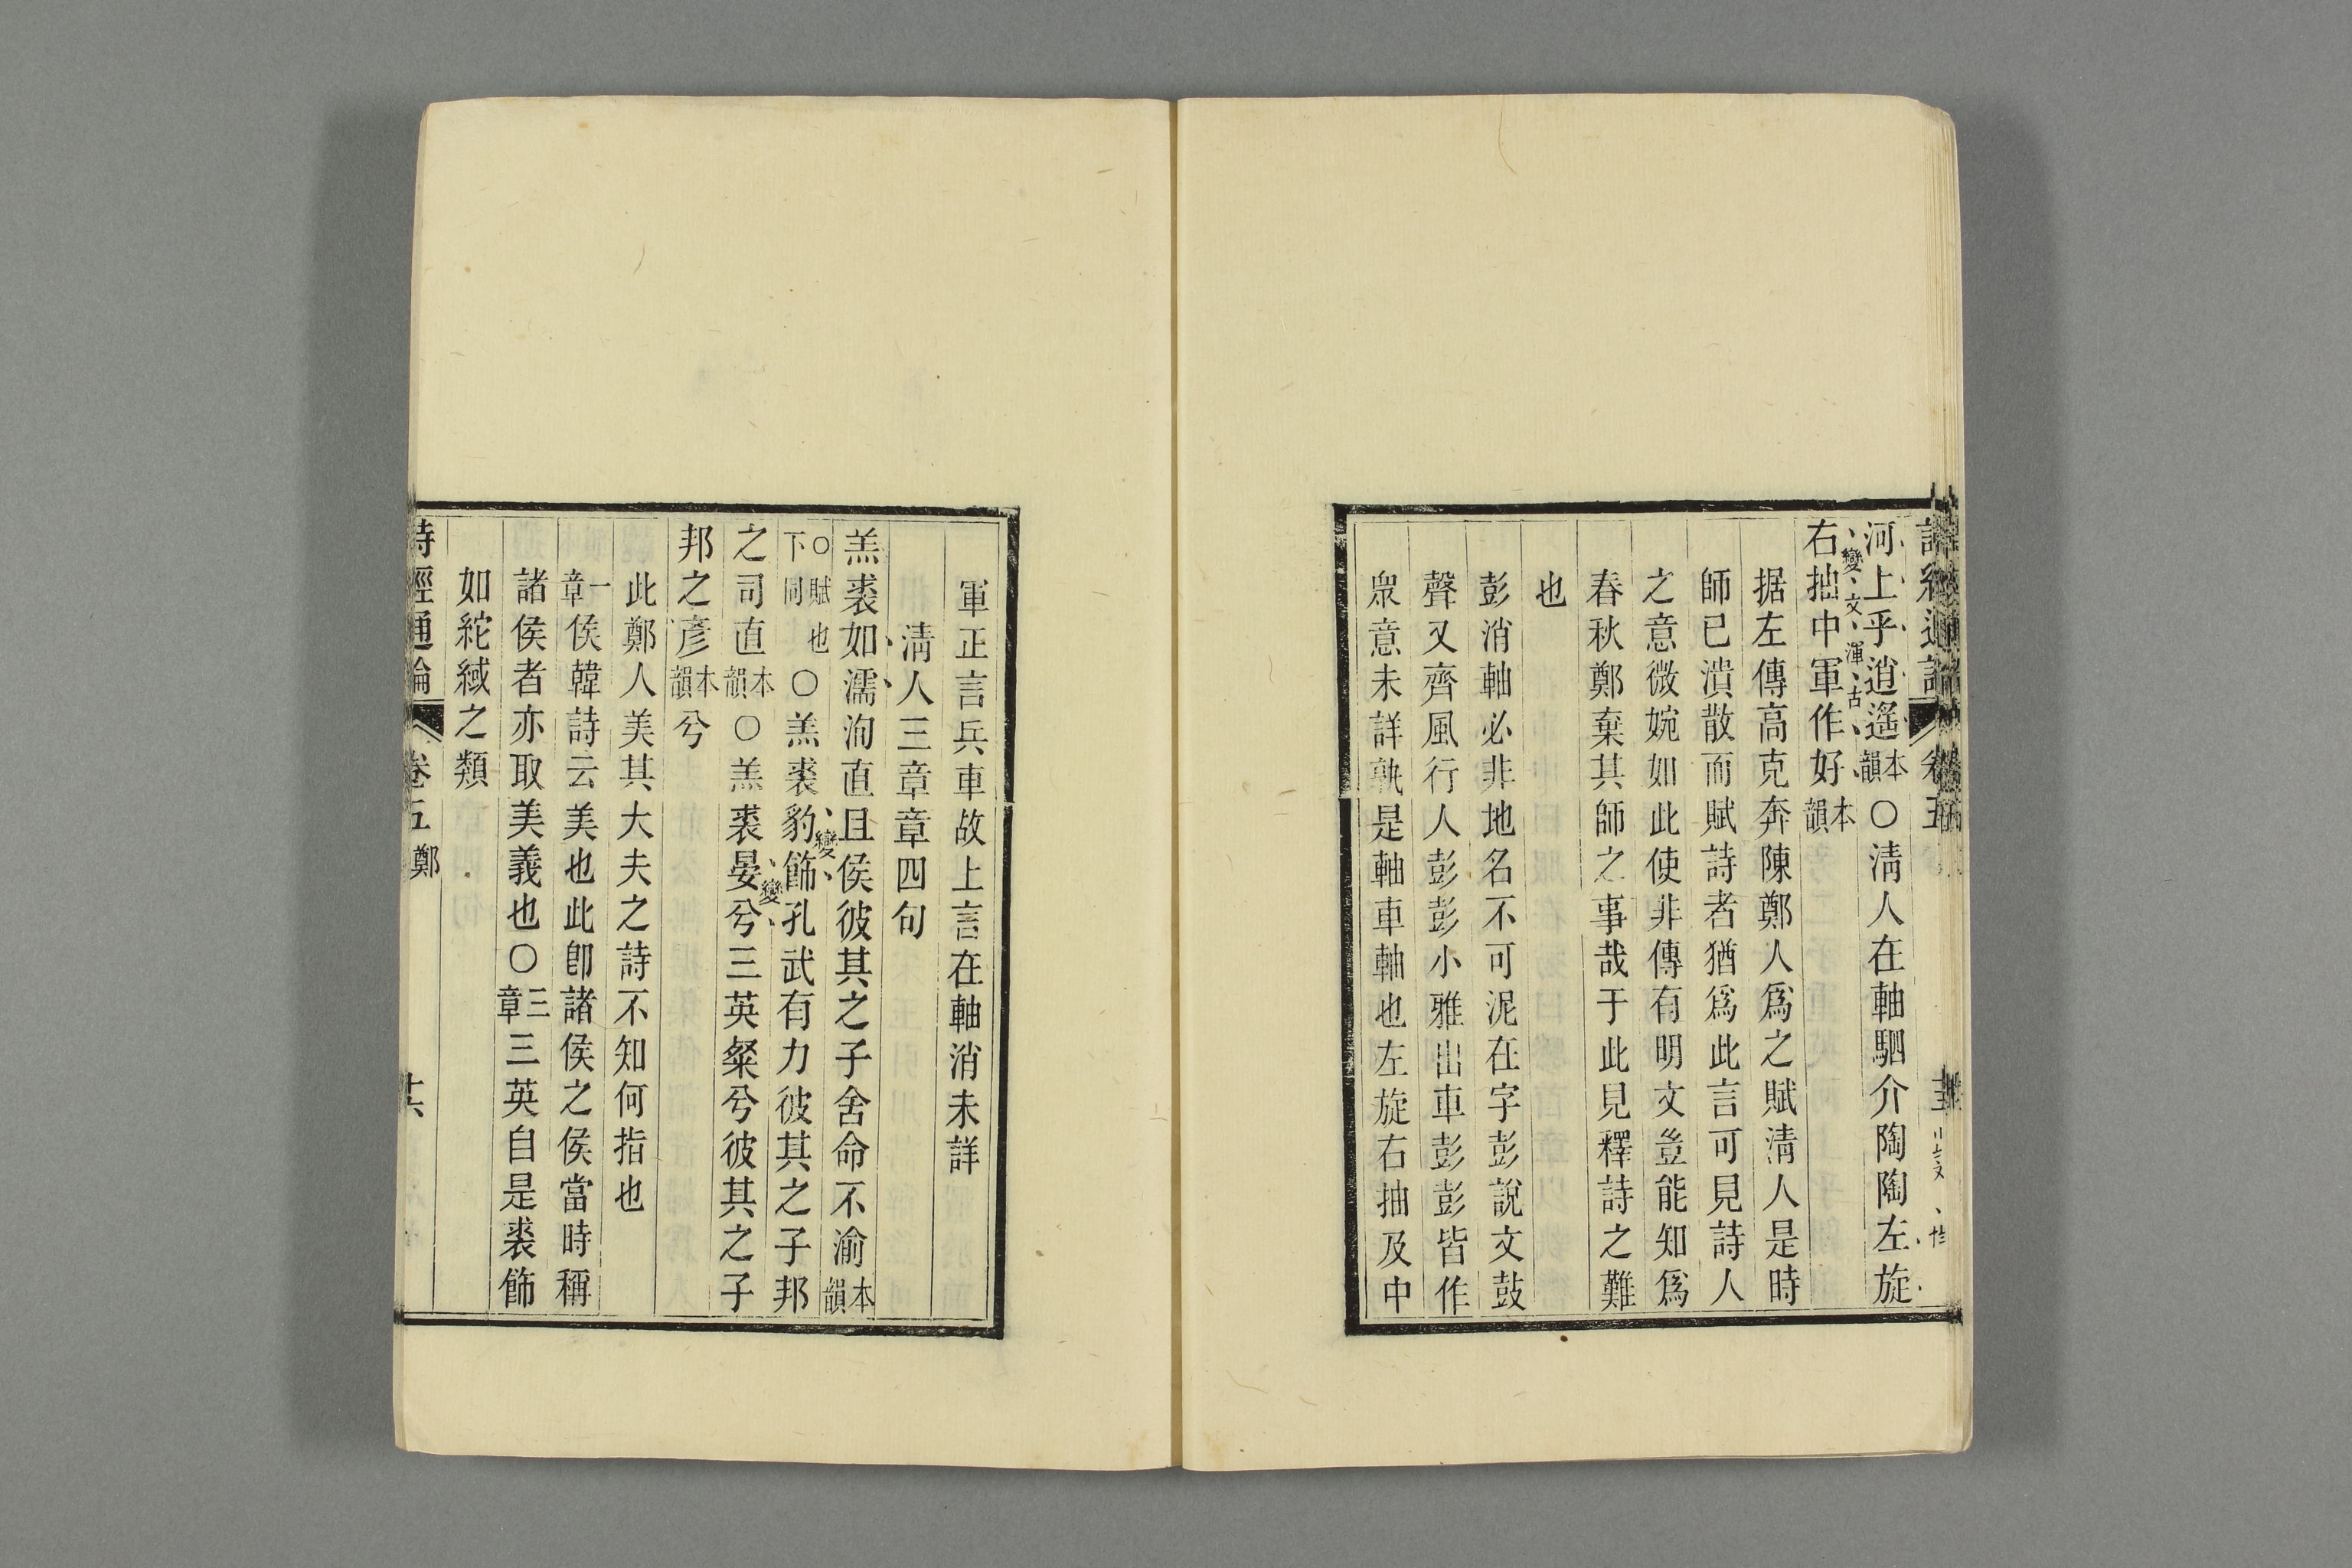 河上乎逍遙本韻○淸人在軸駟介陶陶左旋
右抽中軍作好本韻
變文渾古
据左傳高克奔陳鄭人爲之賦淸人是時
師已潰散而賦詩者猶爲此言可見詩人
之意微婉如此使非傳有明文豈能知爲
春秋鄭棄其師之事哉于此見釋詩之難
也
彭消軸必非地名不可泥在字彭說文鼓
聲又齊風行人彭彭小雅出車彭彭皆作
眾意未詳孰是軸車軸也左旋右抽及中
軍正言兵車故上言在軸消未詳
淸人三章章四句
羔裘如濡洵直且侯彼其之子舍命不渝本韻
○賦也下同○羔裘豹飾孔武有力彼其之子邦
變
之司直本韻○羔裘晏兮三英粲兮彼其之子
變
邦之彥本韻兮
此鄭人美其大夫之詩不知何指也
一章侯韓詩云美也此卽諸侯之侯當時稱
諸侯者亦取美義也○三章三英自是裘飾
如紽緎之類
詩經通論 卷五 鄭 十六